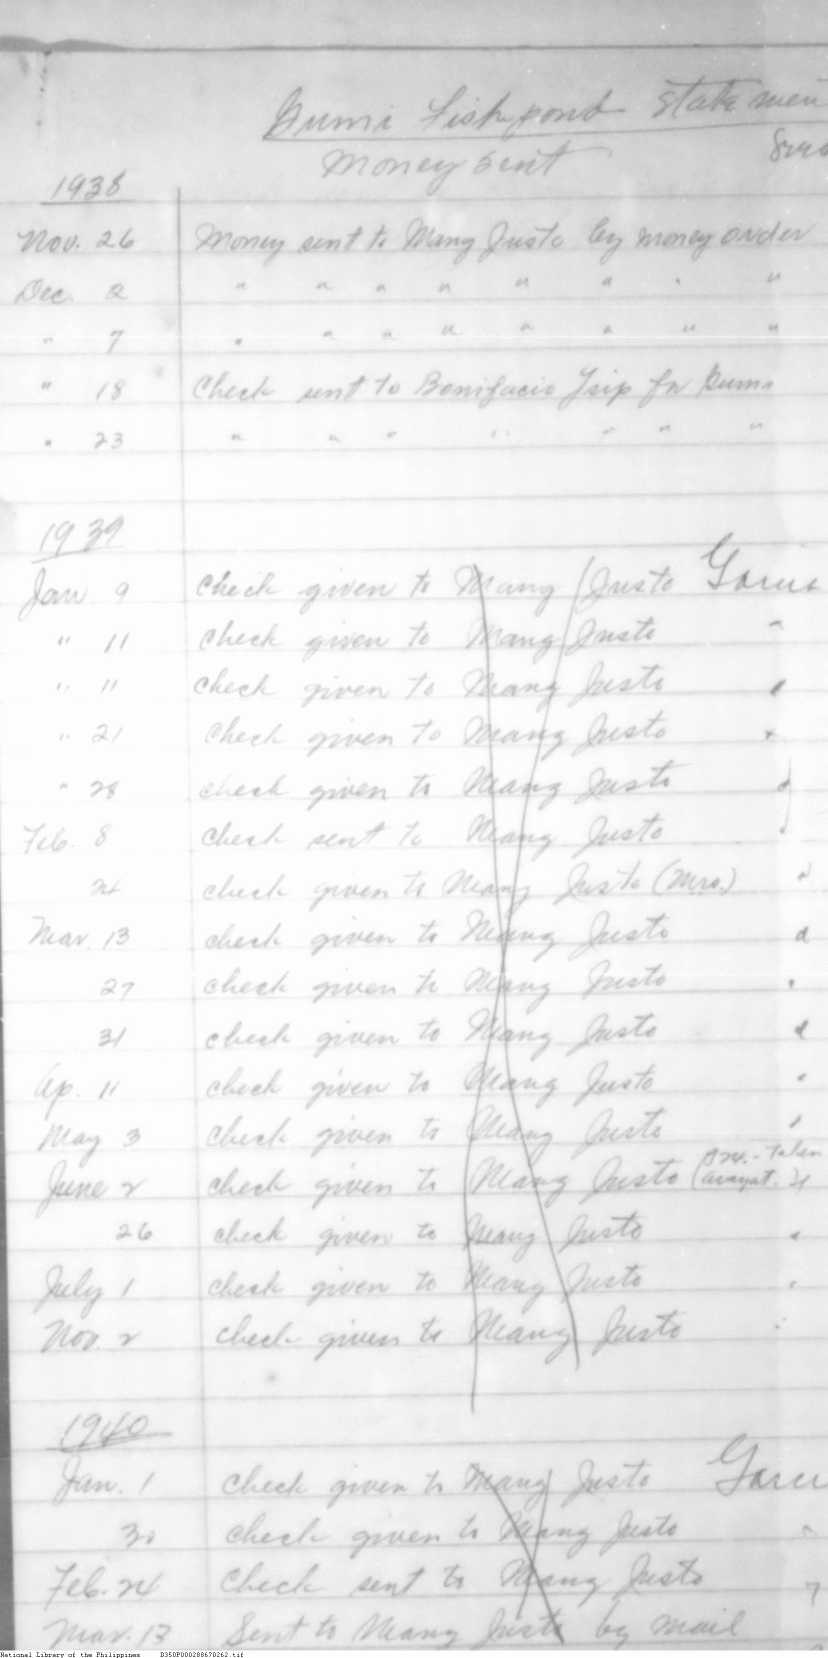 Gumi Fishpond Statemen
Money sent
1938
Nov. 26 Money sent to Mang Justo by money order
Dec. 2 " " " " " " " "
" 7 " " " " " " " "
" 18 Check sent to Bonifacio Ysip for Gumi
" 23 " " " " " " "
1939
Jan 9 Check given to Mang Justo Garcia
" 11 Check given to Mang Justo "
" 11 Check given to Mang Justo "
" 21 Check given to Mang Justo "
" 28 Check given to Mang Justo "
Feb. 8 Check sent to Mang Justo "
24 check given to Mang Justo (Mrs.) "
Mar. 13 check given to Mang Justo "
27 check given to Mang Justo "
31 check given to Mang Justo "
Ap. 11 check given to Mang Justo "
May 3 check given to Mang Justo "
June 2 check given to Mang Justo - Taken
Arayat.
26 check given to Mang Justo "
July 1 check given to Mang Justo "
Nov. 2 check given to Mang Justo "
1940
Jan. 1 Check given to Mang Justo Garci
30 Check given to Mang Justo "
Feb. 24 Check sent to Mang Justo
Mar. 13 Sent to Mang Justo by mail
National Library of the Philippines D350P000288670262.tif